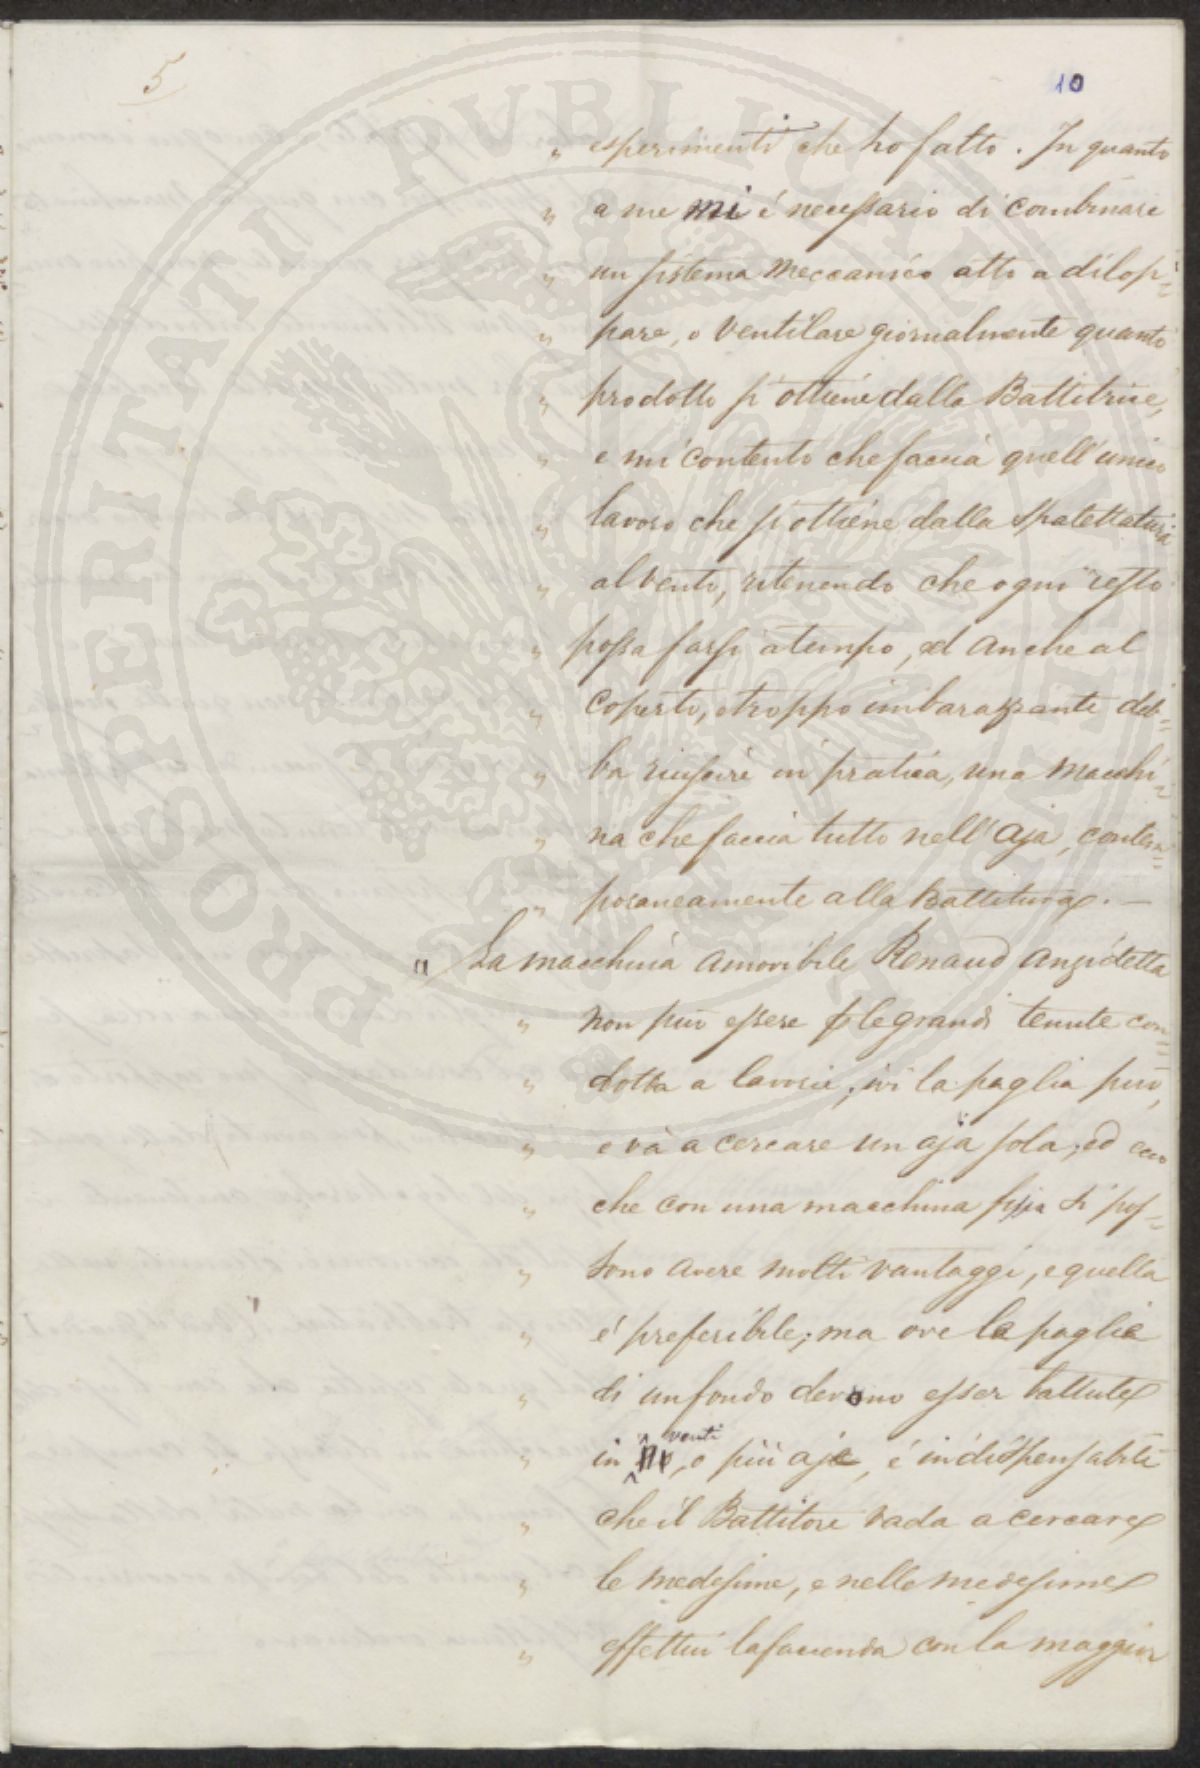 5
10
„ esperimenti che ho fatto. In quanto
„ a me mi é necessario di combinare
„ un sistema Meccanico atto a dilop=
„ pare, o Ventilare giornalmente quanto
„ prodotto si ottiene dalla Battitrice,
„ e mi contento che faccia quell'unico
„ lavoro che si ottiene dalla spalettatura
„ al vento, ritenendo che ogni resto
„ possa farsi a tempo, ed anche al
„ coperto, e troppo imbarazzante deb=
„ ba riuscire in pratica, una macchi=
„ na che faccia tutto nell'aja, contem=
„ poraneamente alla Battitura. —
„ La macchina amovibile Renaud anzidetta
„ non può essere p le grandi tenute con=
„ dotta a lavorie; ivi la paglia può,
„ e và a cercare un aja sola, ed ecco
„ che con una macchina fissa si pos=
„ sono avere molti vantaggi, e quella
„ é preferibile; ma ove le paglie
„ di un fondo devono esser battute
„ in venti, o più aje, é indispensabile
„ che il Battitore vada a cercare
„ le medesime, e nelle medesime
„ effettui la facenda con la maggior
PROSPERITATI PUBLICAE AUGENDAE